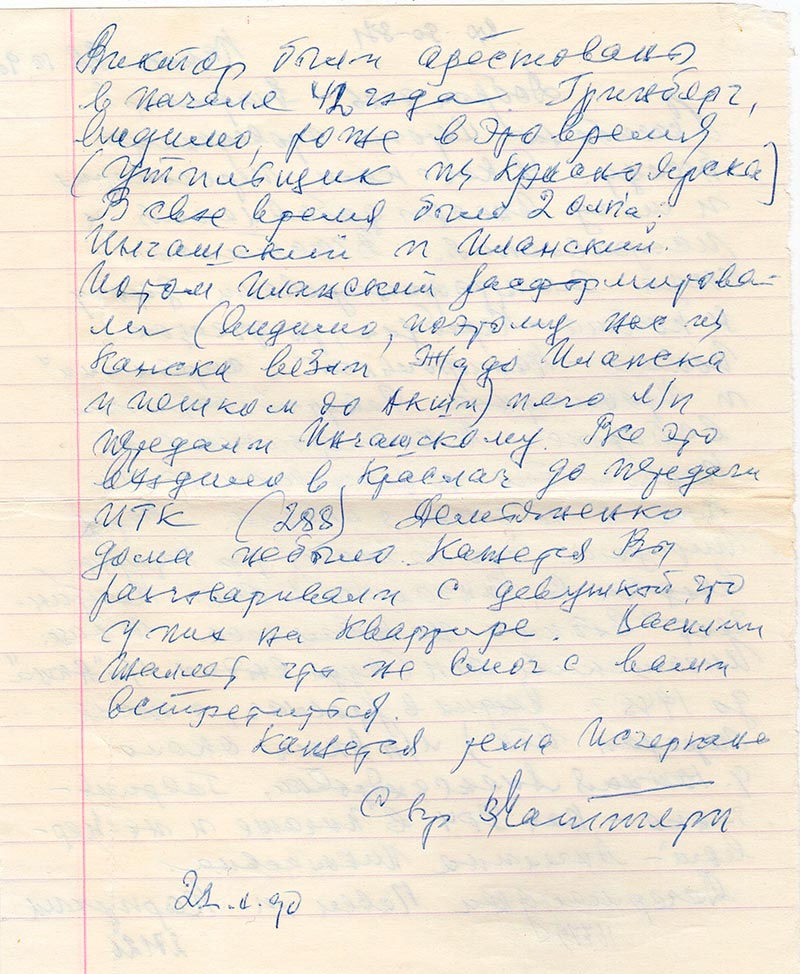 Виктор были арестованы
в начале 42 года Гринберг,
видимо, тоже в это время
(утильщик из Красноярска)
В свое время было 2 олп'а:
Ингашский и Иланский.
Потом Иланский расформирова-
ли (видимо, поэтому нас из
Канска везли ж/д до Иланска
и пешком до) и его л/п
передали Ингашскому. Все это
входило в Краслаг до передачи
ИТК (288)
дома не было. Кажется Вы
разговаривали с девушкой, что
у них на квартире. Василий
жалеет, что не смог с вами
встретиться.
Кажется тема исчерпана
С ув.